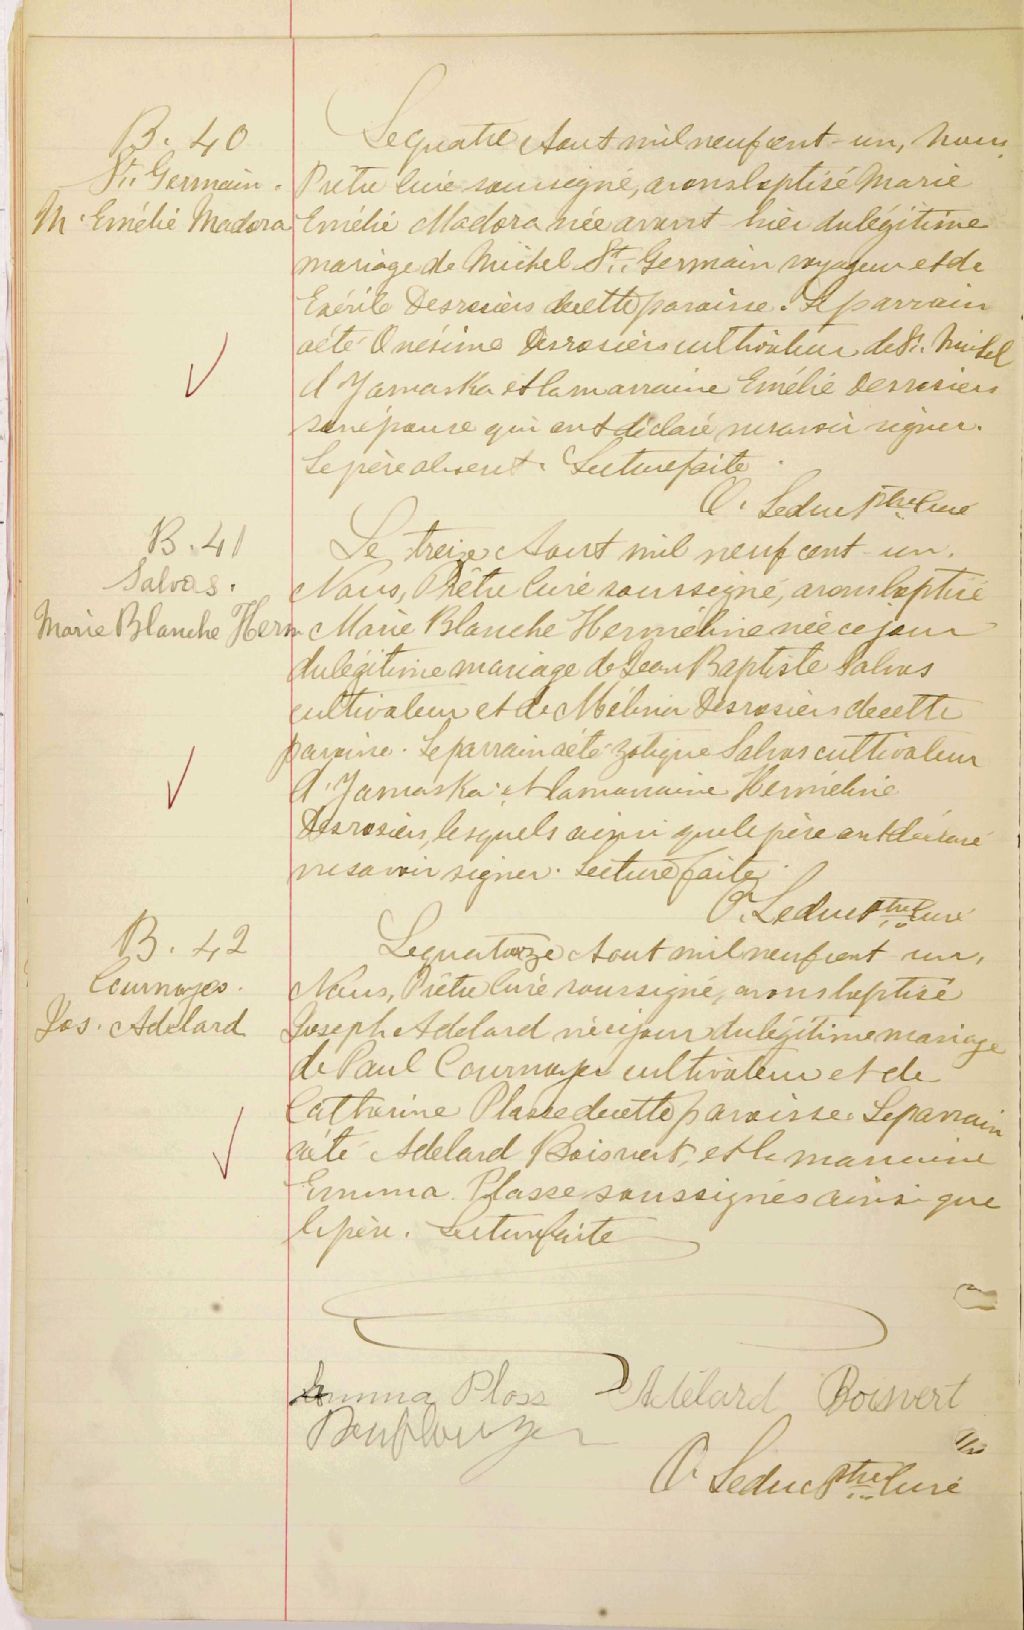 B. 40
St. Germain.
M. Emélie Madora
Le quatre Aout mil neuf cent-un, Nous
Prêtre Curé soussigné, avons baptisé Marie
Emélie Madora née avant-hier du légitime
mariage de Michel St. Germain voyageur et de
Exérile Desrosiers de cette paroisse. Le parrain
a été Onésime Desrosiers cultivateur de St. Michel
d'Yamaska et la marraine Emélie Desrosiers
son épouse qui ont déclaré ne savoir signer.
Le père absent. Lecture faite.
O. Leduc Ptre Curé
B. 41
Salvas.
Marie Blanche Herm
Le treize Aout mil neuf cent-un.
Nous, Prêtre Curé soussigné, avons baptisé
Marie Blanche Herméline née ce jour
du légitime mariage de Jean Baptiste Salvas
cultivateur et de Mélina Desrosiers de cette
paroisse. Le parrain a été Zotique Salvas cultivateur
d'Yamaska et la marraine Herméline
Desrosiers, lesquels ainsi que le père ont déclaré
ne savoir signer. Lecture faite.
O. Leduc Ptre Curé
B. 42
Cournoyer.
Jos. Adelard
Le quatorze Aout mil neuf cent un,
Nous, Prêtre Curé soussigné, avons baptisé
Joseph Adelard né ce jour du légitime mariage
de Paul Cournoyer cultivateur et de
Catherine Plasse de cette paroisse. Le parrain
a été Adelard Boisvert, et la marraine
Emma Plasse soussignés ainsi que
le père. Lecture faite
Emma Plass Adélard Boisvert
O. Leduc Ptre Curé